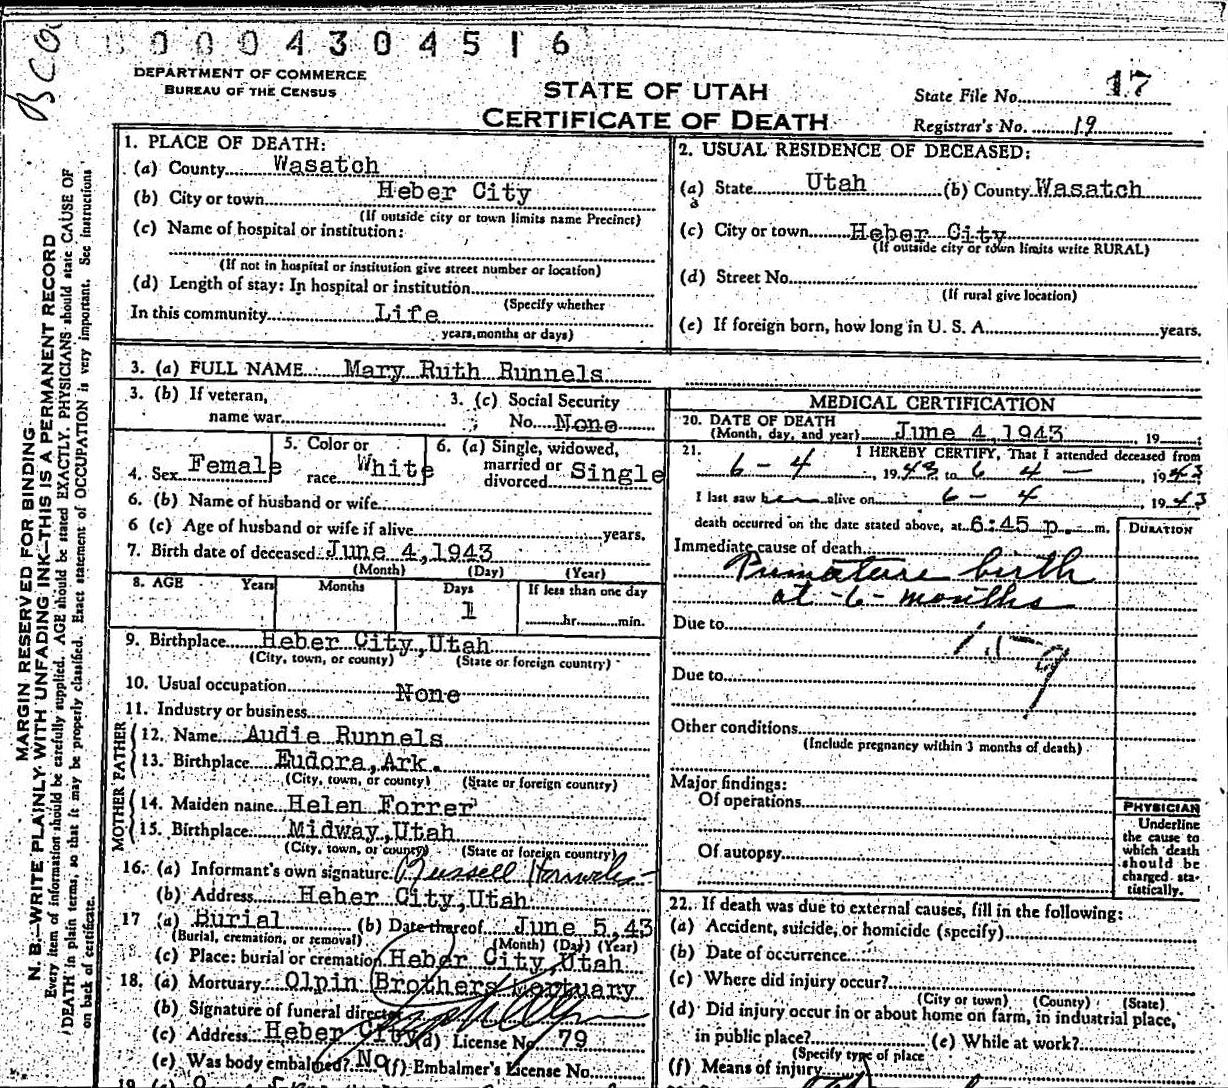 0 0 0 4 3 0 4 5 1 6
DEPARTMENT OF COMMERCE
BUREAU OF THE CENSUS
STATE OF UTAH
CERTIFICATE OF DEATH
State File No. 17
Registrar's No. 19
MARGIN RESERVED FOR BINDING
N. B.—WRITE PLAINLY WITH UNFADING INK—THIS IS A PERMANENT RECORD
Every item of information should be carefully supplied. AGE should be stated EXACTLY. PHYSICIANS should state CAUSE OF
DEATH in plain terms, so that it may be properly classified. Exact statement of OCCUPATION is very important. See instructions
on back of certificate.
1. PLACE OF DEATH:
(a) County Wasatch
(b) City or town Heber City
(If outside city or town limits name Precinct)
(c) Name of hospital or institution:
(If not in hospital or institution give street number or location)
(d) Length of stay: In hospital or institution
(Specify whether
In this community Life
years, months or days)
2. USUAL RESIDENCE OF DECEASED:
(a) State Utah (b) County Wasatch
(c) City or town Heber City
(If outside city or town limits write RURAL)
(d) Street No.
(If rural give location)
(e) If foreign born, how long in U. S. A. years.
3. (a) FULL NAME Mary Ruth Runnels
3. (b) If veteran,
name war
3. (c) Social Security
No. None
4. Sex Female
5. Color or
race White
6. (a) Single, widowed,
married or
divorced Single
6. (b) Name of husband or wife
6 (c) Age of husband or wife if alive years.
7. Birth date of deceased June 4, 1943
(Month) (Day) (Year)
8. AGE Years Months Days If less than one day
1 hr. min.
9. Birthplace Heber City, Utah
(City, town, or county) (State or foreign country)
10. Usual occupation None
11. Industry or business
MOTHER FATHER
12. Name Audie Runnels
13. Birthplace Eudora, Ark.
(City, town, or county) (State or foreign country)
14. Maiden name Helen Forrer
15. Birthplace Midway, Utah
(City, town, or county) (State or foreign country)
16. (a) Informant's own signature Russell
(b) Address Heber City, Utah
17 (a) Burial (b) Date thereof June 5, 43
(Burial, cremation, or removal) (Month) (Day) (Year)
(c) Place: burial or cremation Heber City, Utah
18. (a) Mortuary Olpin Brothers Mortuary
(b) Signature of funeral director
(c) Address Heber City (d) License No. 79
(e) Was body embalmed? No (f) Embalmer's License No.
MEDICAL CERTIFICATION
20. DATE OF DEATH
(Month, day, and year) June 4, 1943 19
21. I HEREBY CERTIFY, That I attended deceased from
6 - 4, 1943 to 6 4 -, 1943
I last saw her alive on 6 - 4 1943
death occurred on the date stated above, at 6:45 p. m.
DURATION
Immediate cause of death
Premature birth
at -6- months
Due to
159
Due to
Other conditions
(Include pregnancy within 3 months of death)
Major findings:
Of operations
Of autopsy
PHYSICIAN
Underline
the cause to
which death
should be
charged sta-
tistically.
22. If death was due to external causes, fill in the following:
(a) Accident, suicide, or homicide (specify)
(b) Date of occurrence
(c) Where did injury occur?
(City or town) (County) (State)
(d) Did injury occur in or about home on farm, in industrial place,
in public place? (e) While at work?
(Specify type of place
(f) Means of injury